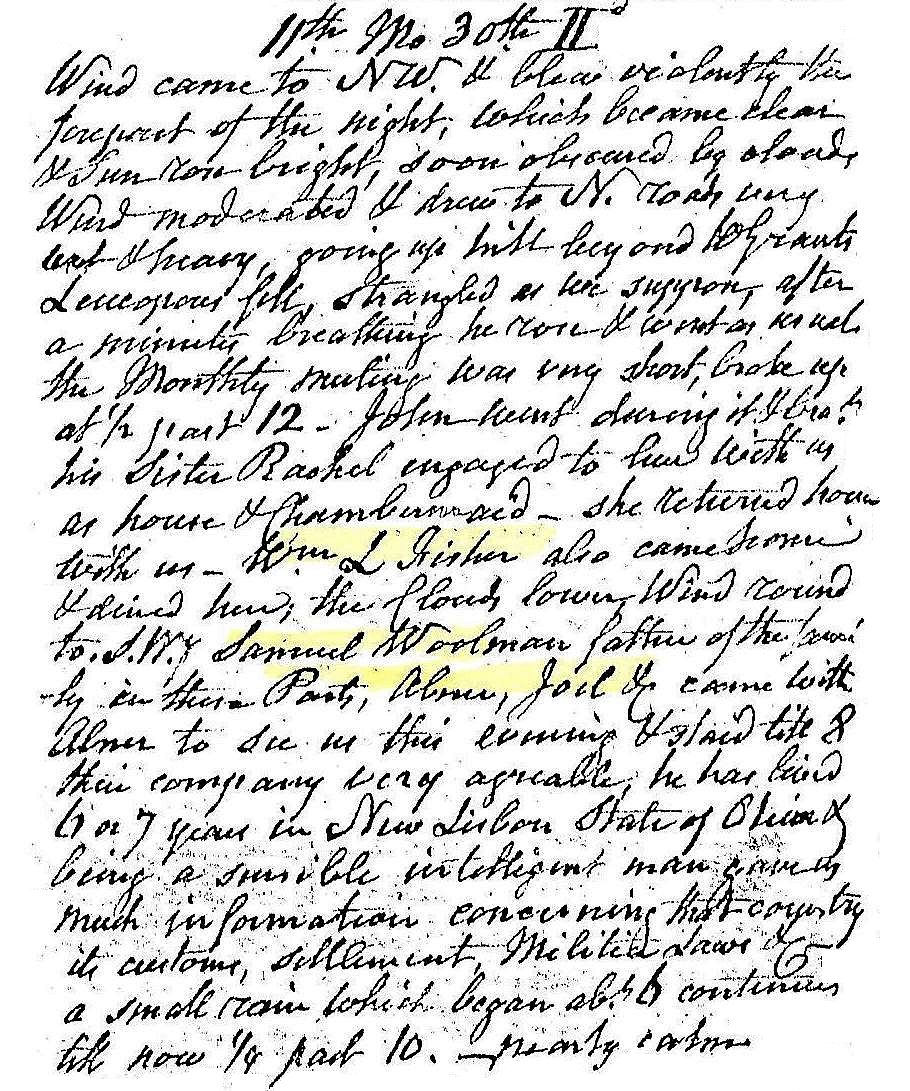 11th Mo 30th II d
Wind came to NW. & blew violently the
forepart of the night, which became clear
& Sun rose bright, soon obscured by clouds
Wind moderated & drew to N. roads very
wet & heavy, going up hill beyond Grants
Leucopous fell, strangled as we suppose, after
a minutes breathing he rose & went as usual
the Monthly meeting was very short, broke up
at ½ past 12 - John went during it & brot
his Sister Rachel engaged to live with us
as house & Chambermaid - she returned home
with us - Wm L Fisher also came home
& dined here; the Clouds lower, Wind round
to. S.W; Samuel Woolman father of the fami
-ly in these Parts, Abner, Joel & came with
Abner to see us this evening & staid till 8
their company very agreable, he has lived
6 or 7 years in New Lisbon State of Ohio &
being a sensible intelligent man gave us
much information concerning that country
its customs, settlement, Militia Laws &c
a small rain which began abt 6 continues
till now ¼ past 10. - nearly calm